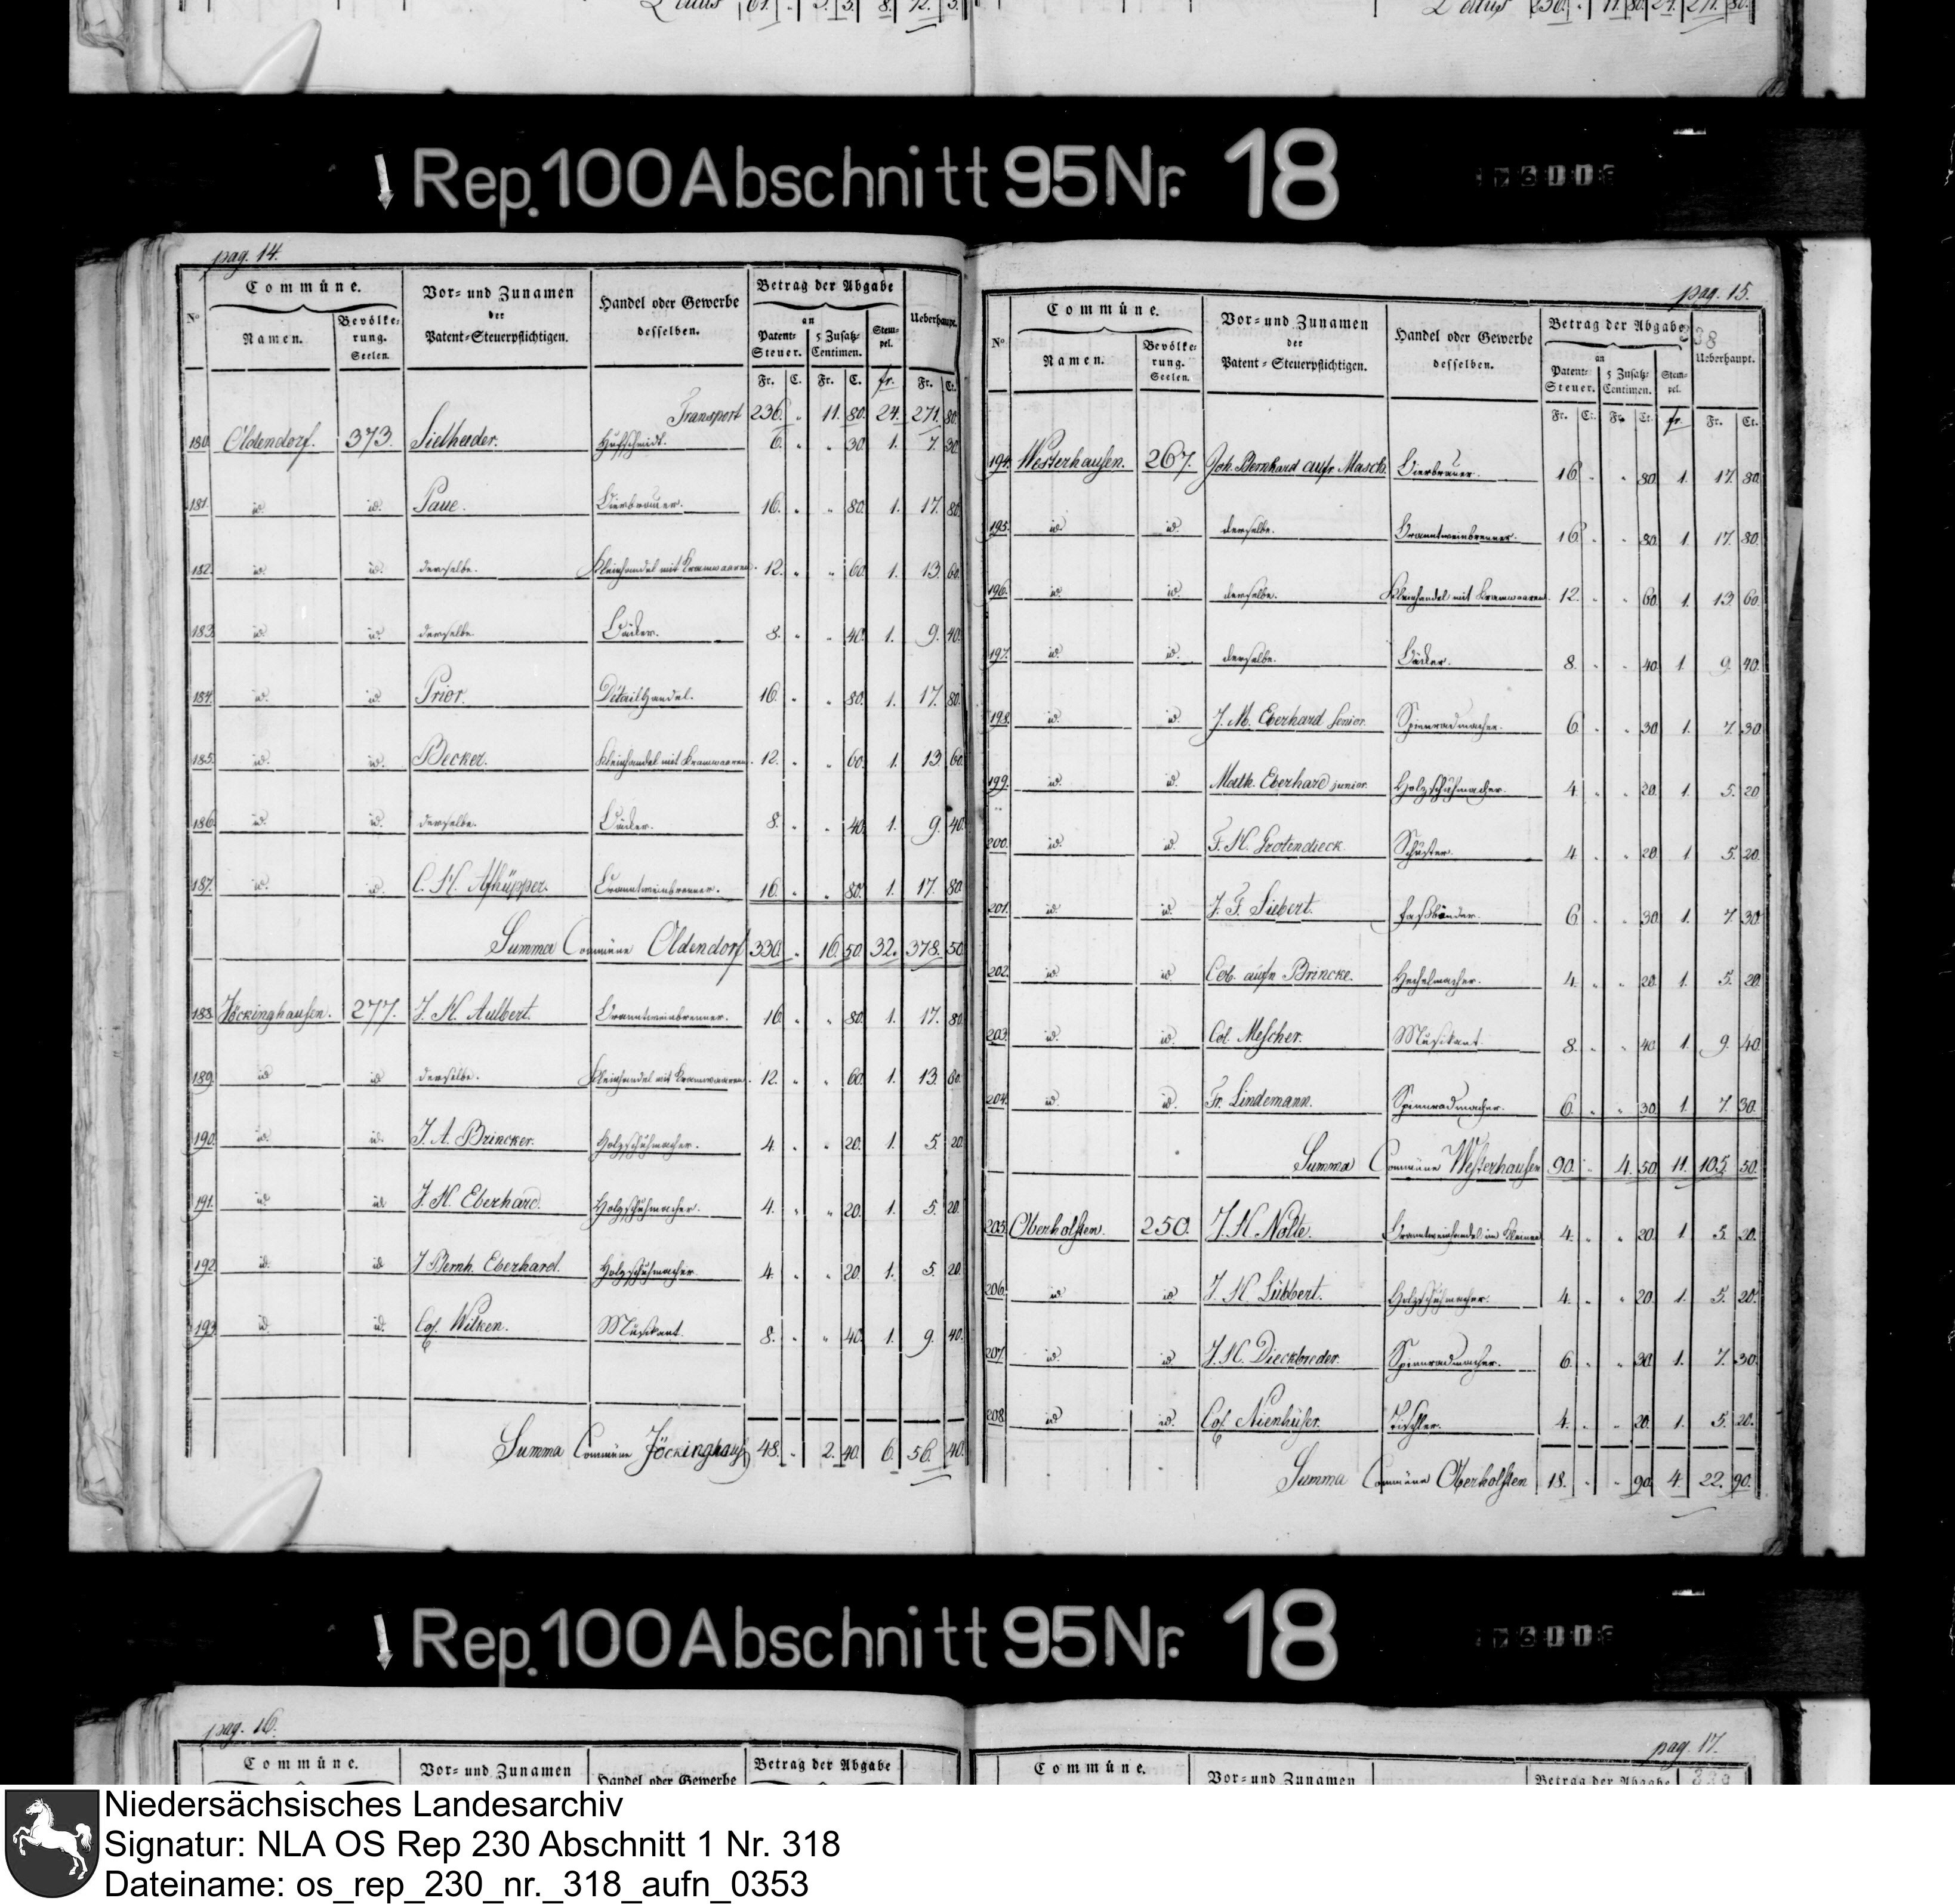 Latus 61. . 3. 5. 8. 72. 5.
Latus 236. . 11. 80. 24. 271. 80.
Rep. 100 Abschnitt 95 Nr. 18
pag. 14.
Nº Commüne. Vor- und Zunamen der Patent-Steuerpflichtigen. Handel oder Gewerbe desselben. Betrag der Abgabe Ueberhaupt.
Namen. Bevölkerung. Seelen. an Patent-Steuer. 5 Zusatz-Centimen. Stempel.
Fr. C. Fr. C. fr. Fr. Ct.
Transport 236. . 11. 80. 24. 271. 80.
180. Oldendorf. 373. Sielheider. Hufschmidt. 6. . . 30. 1. 7. 30.
181. id. id. Paue. Bierbrauer. 16. . . 80. 1. 17. 80.
182. id. id. derselbe. Kleinhandel mit Kramwaaren. 12. . . 60. 1. 13. 60.
183. id. id. derselbe. Bäcker. 8. . . 40. 1. 9. 40.
184. id. id. Prior. Détailhandel. 16. . . 80. 1. 17. 80.
185. id. id. Becker. Kleinhandel mit Kramwaaren. 12. . . 60. 1. 13. 60.
186. id. id. derselbe. Bäcker. 8. . . 40. 1. 9. 40.
187. id. id. C. H. Afhüpper. Branntweinbrenner. 16. . . 80. 1. 17. 80.
Summa Commüne Oldendorf 330. . 16. 50. 32. 378. 50.
188. Jöckinghausen. 277. J. H. Aulbert. Branntweinbrenner. 16. . . 80. 1. 17. 80.
189. id. id. derselbe. Kleinhandel mit Kramwaaren. 12. . . 60. 1. 13. 60.
190. id. id. J. A. Brincker. Holzschuhmacher. 4. . . 20. 1. 5. 20.
191. id. id. J. H. Eberhard. Holzschuhmacher. 4. . . 20. 1. 5. 20.
192. id. id. J Bernh. Eberhard. Holzschuhmacher. 4. . . 20. 1. 5. 20.
193. id. id. Col. Wilken. Müsikant. 8. . . 40. 1. 9. 40.
Summa Commüne Jöckinghaus 48. . 2. 40. 6. 56. 40.
pag. 15.
238
Nº Commüne. Vor- und Zunamen der Patent-Steuerpflichtigen. Handel oder Gewerbe desselben. Betrag der Abgabe Ueberhaupt.
Namen. Bevölkerung. Seelen. an Patent-Steuer. 5 Zusatz-Centimen. Stempel.
Fr. Ct. Fr. Ct. fr. Fr. Ct.
194. Westerhausen. 267. Joh. Bernhard aufr Masch. Bierbrauer. 16. . . 80. 1. 17. 80.
195. id. id. derselbe. Branntweinbrenner. 16. . . 80. 1. 17. 80.
196. id. id. derselbe. Kleinhandel mit Kramwaaren. 12. . . 60. 1. 13. 60.
197. id. id. derselbe. Bäcker. 8. . . 40. 1. 9. 40.
198. id. id. J. M. Eberhard senior. Spinnradmacher. 6. . . 30. 1. 7. 30.
199. id. id. Math. Eberhard junior. Holzschühmacher. 4. . . 20. 1. 5. 20
200. id. id. F. H. Grotendieck. Schuster. 4. . . 20. 1. 5. 20.
201. id. id. J. F. Siebert. Faßbinder. 6. . . 30. 1. 7. 30.
202. id. id. Col. aufm Brincke. Hechelmacher. 4. . . 20. 1. 5. 20.
203. id. id. Col. Mescher. Müsikant. 8. . . 40. 1. 9. 40.
204. id. id. Fr. Lindemann. Spinnradmacher. 6. . . 30. 1. 7. 30.
Summa Commüne Westerhausen 90. . 4. 50. 11. 105. 50.
205. Oberholsten. 250. J. H. Nolte. Branntweinhandel im Kleinen 4. . . 20. 1. 5. 20.
206. id. id. J. H. Lübbert. Holzschühmacher. 4. . . 20. 1. 5. 20.
207. id. id. J. H. Dieckbreder. Spinnradmacher. 6. . . 30. 1. 7. 30.
208. id. id. Col. Nienhüser. Tischler. 4. . . 20. 1. 5. 20.
Summa Commüne Oberholsten 18. . . 90. 4. 22. 90.
Rep. 100 Abschnitt 95 Nr. 18
pag. 16.
Commüne. Vor- und Zunamen Handel oder Gewerbe Betrag der Abgabe
pag. 17.
Commüne. Vor- und Zunamen Betrag der Abgabe
Niedersächsisches Landesarchiv
Signatur: NLA OS Rep 230 Abschnitt 1 Nr. 318
Dateiname: os_rep_230_nr._318_aufn_0353